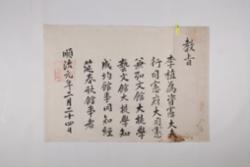 教旨
李植爲資憲大夫
行司憲府大司憲
兼弘文館大提學
藝文館大提學知
成均館事同知經
筵春秋館事者
順治元年三月二十四日